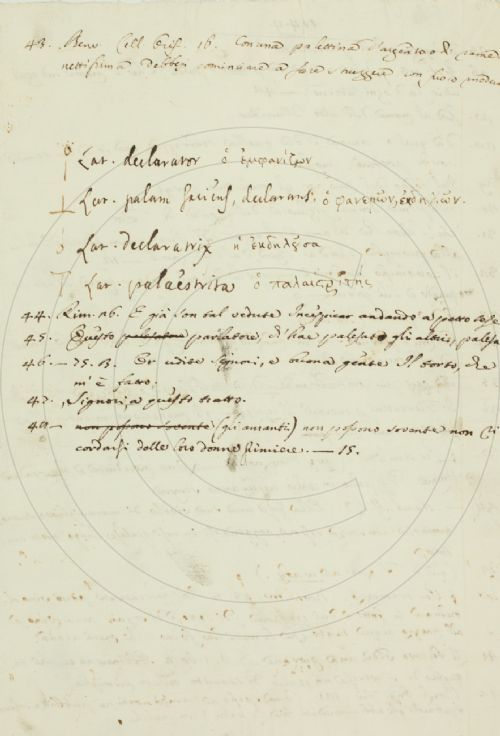 43. Benv. Cell. Oref. 16. Con una palettina d'argento, o di rame
nettissima debbesi cominciare a fare struggere con fuoco
Lat. declarator ὁ ἐμφανίζων
Lat. palam faciens, declarans. ὁ φανερῶν, ἐκδηλῶν.
Lat. declaratrix ἡ ἐκδηλοῦσα
Lat. palaestrita ὁ παλαιστρίτης
44. Rim. 26. E già son tal vedute andando a
45. Questo palesatore parlatore, di' hae palesato gli altrui,
46. — 75. B. Or udite signori, e buona gente Il torto, che
m'è fatto.
47. Signori, a questo tratto.
non possono sovente (gli amanti) non possono sovente non
cordarsi dalle loro donne — 15.